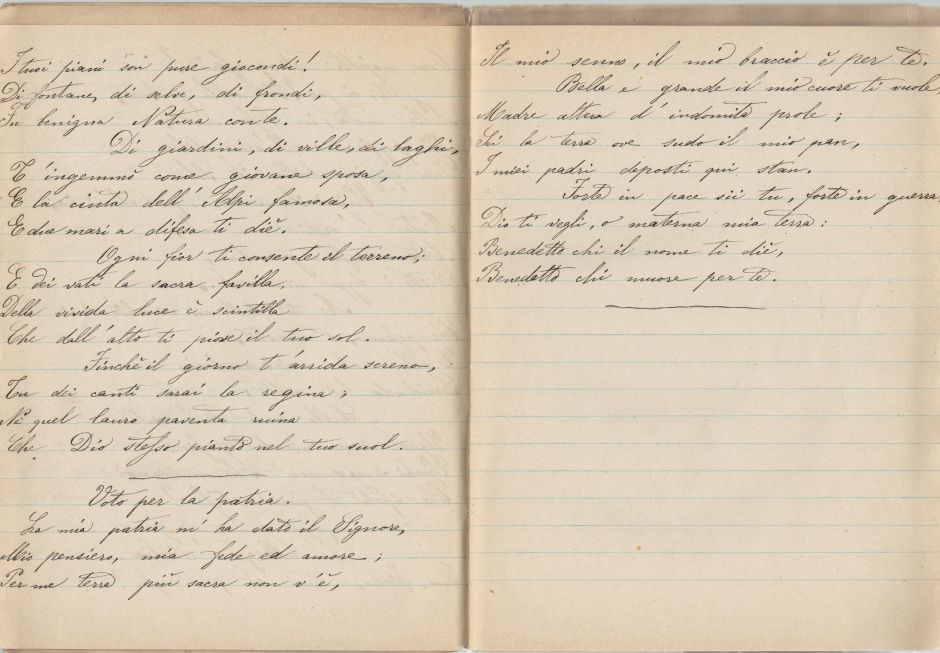 I tuoi piani son pure giocondi!
Di fontane, di selve, di frondi,
Tu benigna Natura conte.
Di giardini, di ville, di laghi,
T' ingemmò come giovane sposa,
E la cinta dell' Alpi famosa,
E due mari a difesa ti diè.
Ogni fior ti consente il terreno;
E dei vati la sacra favilla,
Della vivida luce è scintilla
Che dall' alto ti piove il tuo sol.
Finchè il giorno t' arrida sereno,
Tu dei canti sarai la regina;
Nè quel lauro paventa ruina
Che Dio stesso piantò nel tuo suol.
Voto per la patria.
La mia patria m' ha dato il Signore,
Mio pensiero, mia fede ed amore;
Per me terra più sacra non v'è,
Il mio senno, il mio braccio è per te.
Bella e grande il mio cuore ti vuole,
Madre altera d' indomita prole;
Sei la terra ove sudo il mio pan,
I miei padri deposti qui stan.
Forte in pace sii tu, forte in guerra,
Dio ti vegli, o materna mia terra:
Benedetto chi il nome ti diè,
Benedetto chi muore per te.